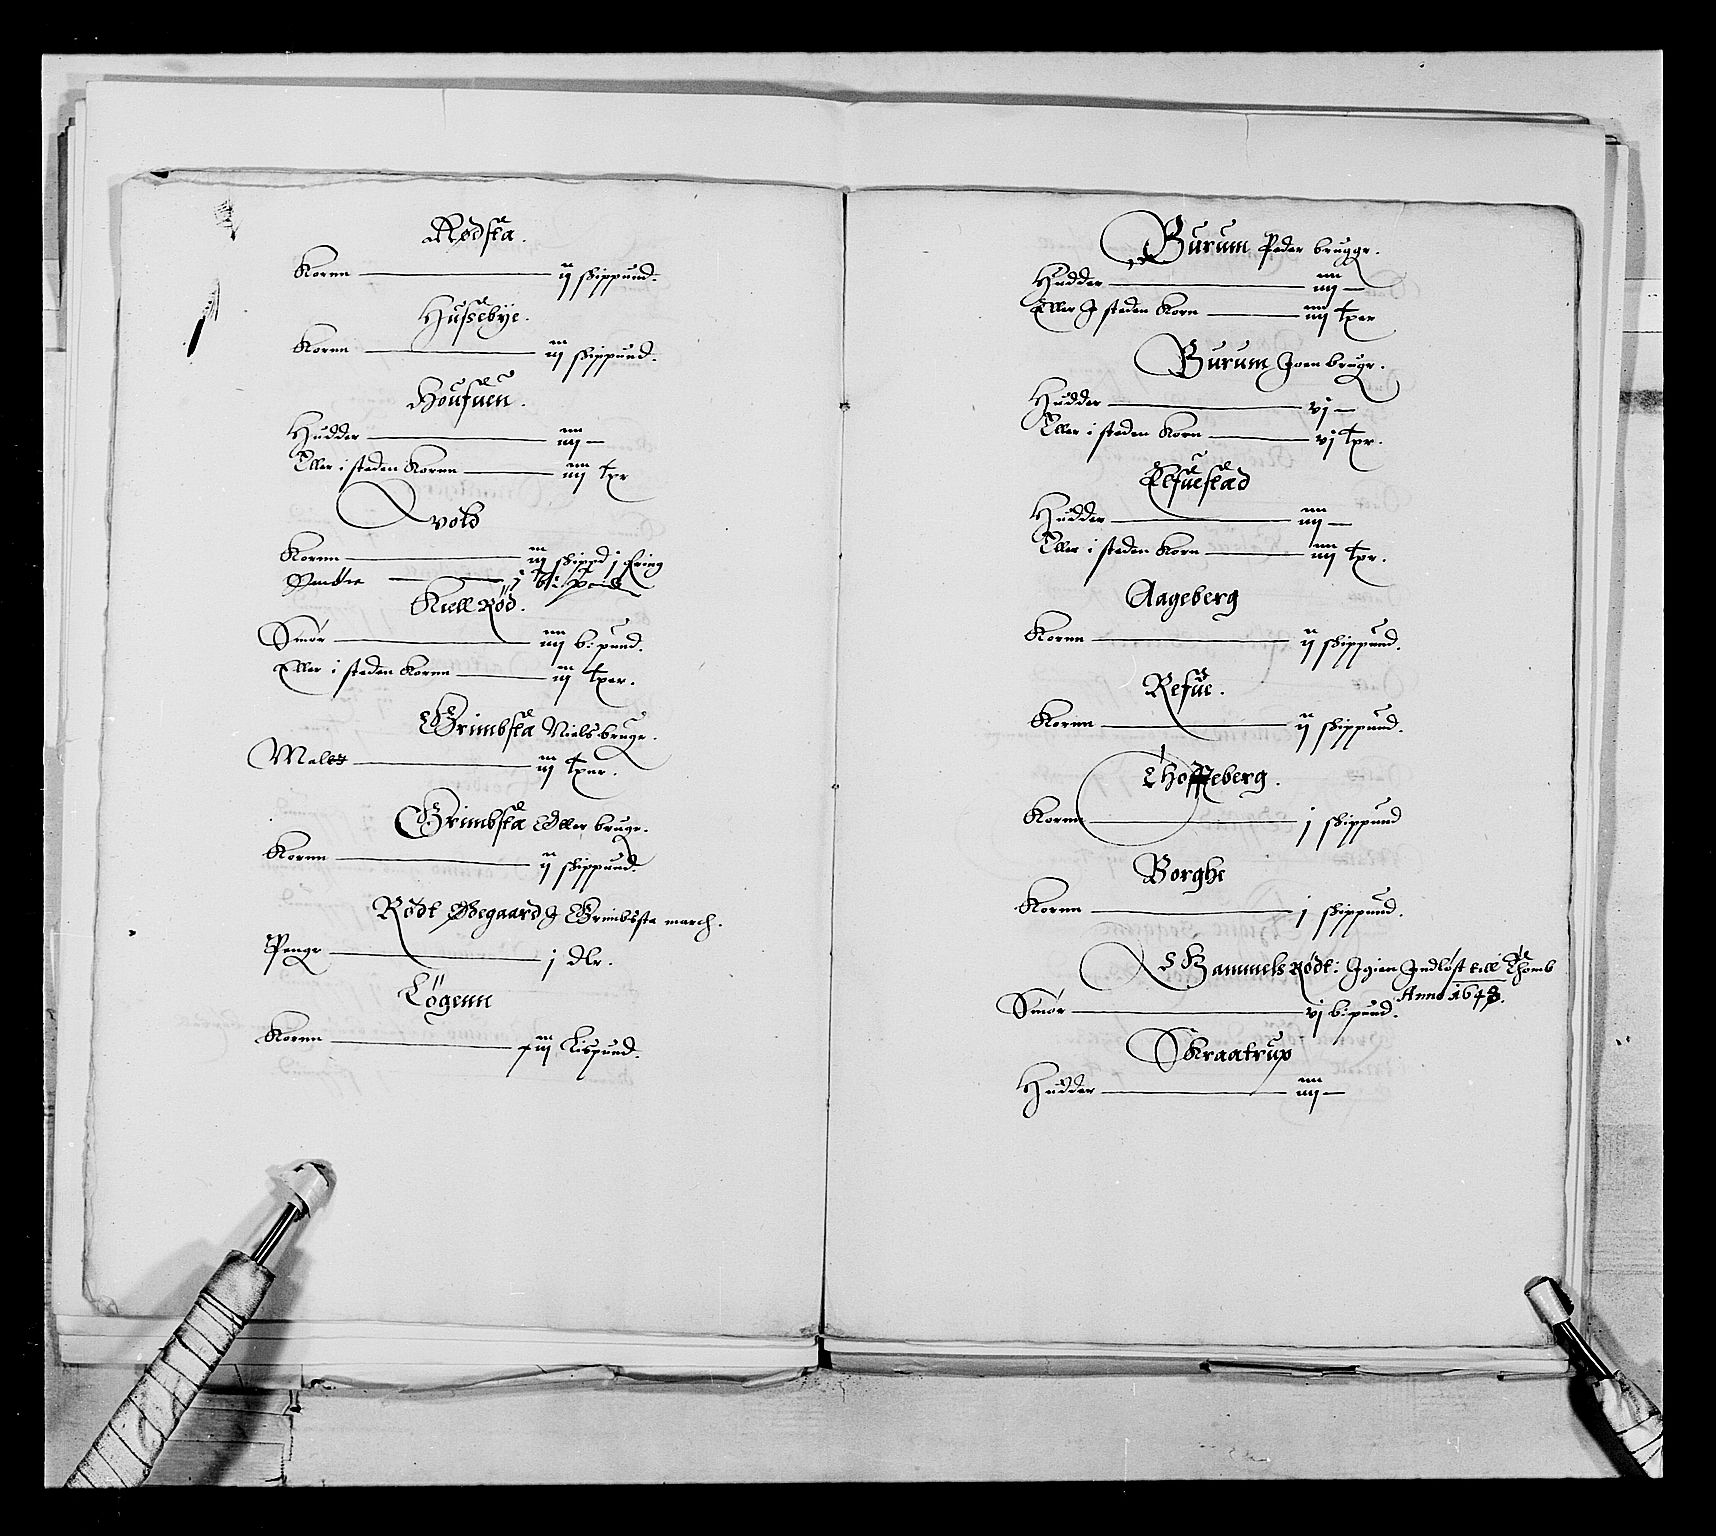 Rødsta.
Kornn ij skippund.
Husebye.
Kornn iij skippund.
Houfuen.
Hudder iiij
Eller i steden Kornn iiij tpr
Qvold
Kornn iij skippd j fring
Smör j b: pund
Kiellrød.
Smör iiij b: pund.
Eller i steden Kornn iij tper.
Grimbsta Niels bruge.
Malt iij tper.
Grimbsta Eller bruge.
Kornn ij skippund.
Rödt Ødegaard J Grimbsta march.
Penge j dlr.
Løgenn
Kornn iij Lispund.
Burum Peder brugge.
Hudder iiij
Eller J steden Korn iiij tper
Burum Joen bruge.
Hudder vj
Eller i steden Korn vj tpr.
Elfuestad
Hudder iiij
Eller i steden Korn iiij tpr.
Aageberg
Kornn ij skippund.
Refue.
Kornn ij skippund.
Thoffteberg.
Kornn j skippund
Borghe
Kornn j skippund.
Gammelsrödt: Igien Indløst till
Anno 1648.
Smör vj b: pund.
Skraatrup
Hudder iiij